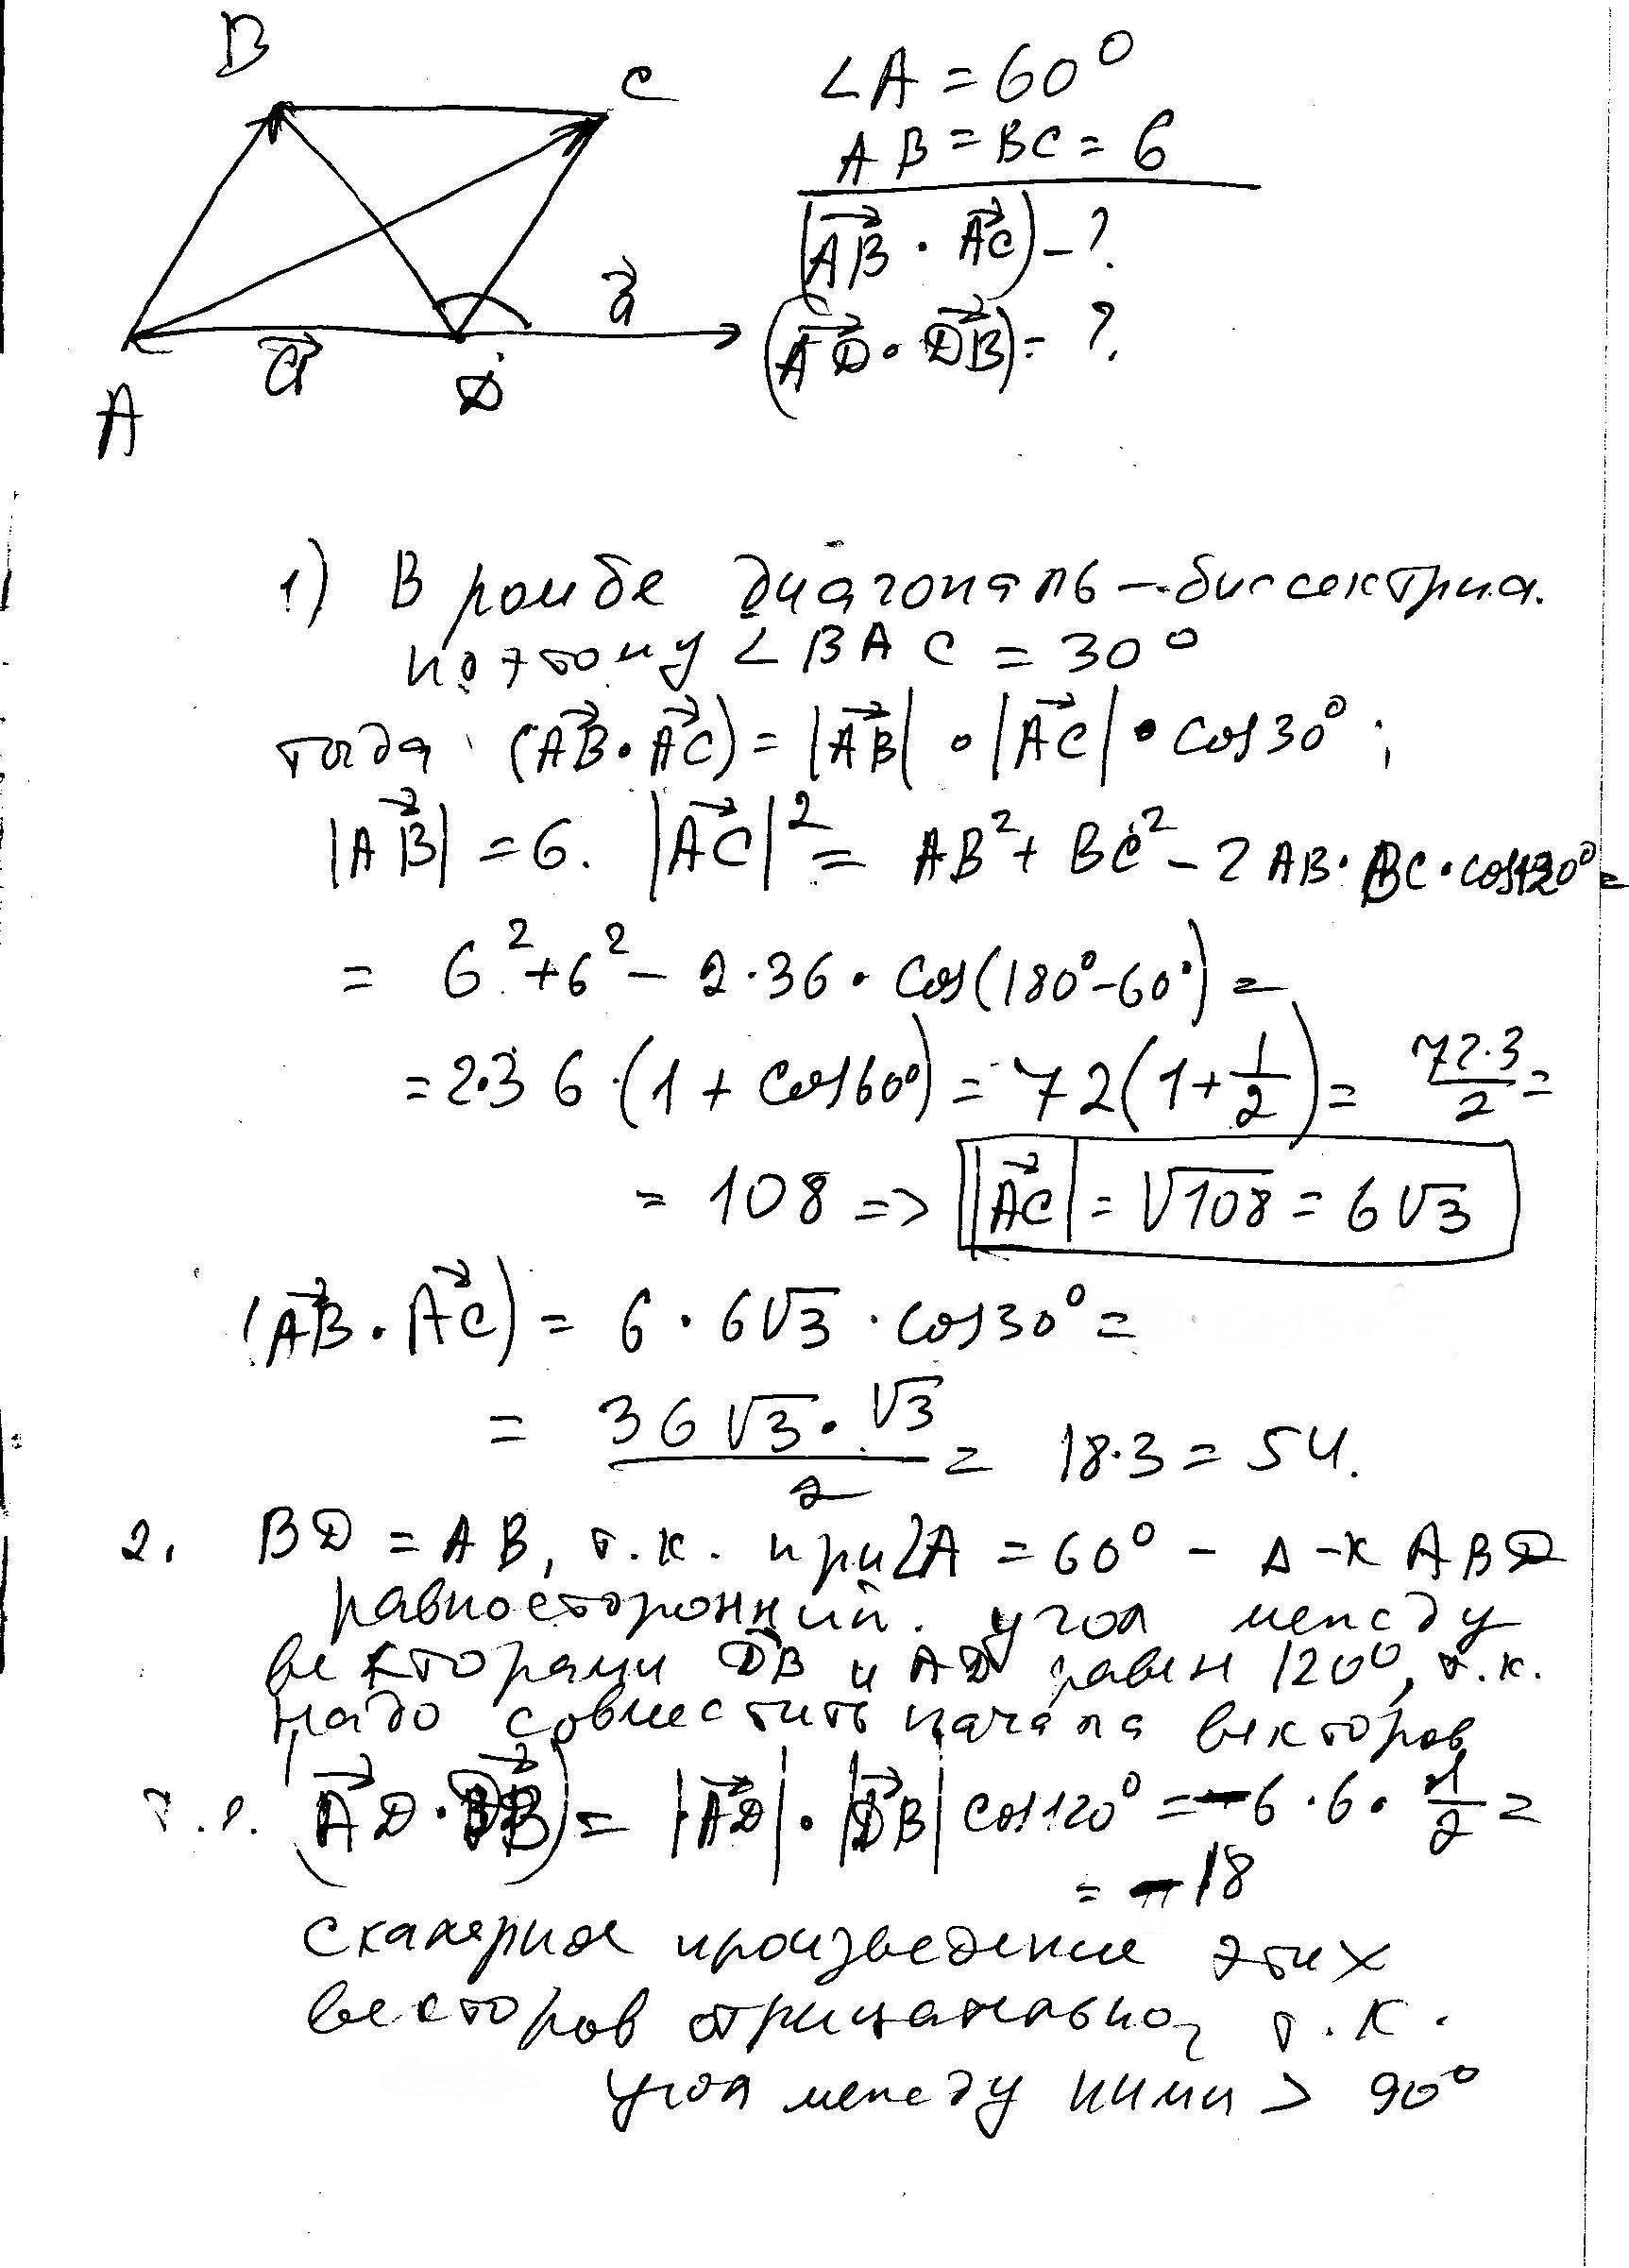 B
C
∠A = 60°
AB = BC = 6
(AB⃗ · AC⃗) – ?
a⃗
(AD⃗ · DB⃗) = ?
a⃗
D
A
1) В ромбе диагональ – биссектриса.
поэтому ∠BAC = 30°
тогда (AB⃗ · AC⃗) = |AB⃗| · |AC⃗| · cos30° ;
|AB⃗| = 6. |AC⃗|² = AB² + BC² – 2AB · BC · cos120° =
= 6² + 6² – 2·36 · cos(180° – 60°) =
= 2·36·(1 + cos60°) = 72(1 + 1/2) = 72·3/2 =
= 108 => |AC⃗| = √108 = 6√3
(AB⃗ · AC⃗) = 6 · 6√3 · cos30° =
= 36√3 · √3/2 = 18·3 = 54.
2. BD = AB, т.к. при ∠A = 60° – Δ-к ABD
равносторонний. угол между
векторами DB⃗ и AD⃗ равен 120°, т.к.
надо совместить начала векторов
(AD⃗ · DB⃗) = |AD⃗| · |DB⃗| cos120° = –6 · 6 · 1/2 =
= –18
скалярное произведение этих
векторов отрицательно, т.к.
угол между ними > 90°